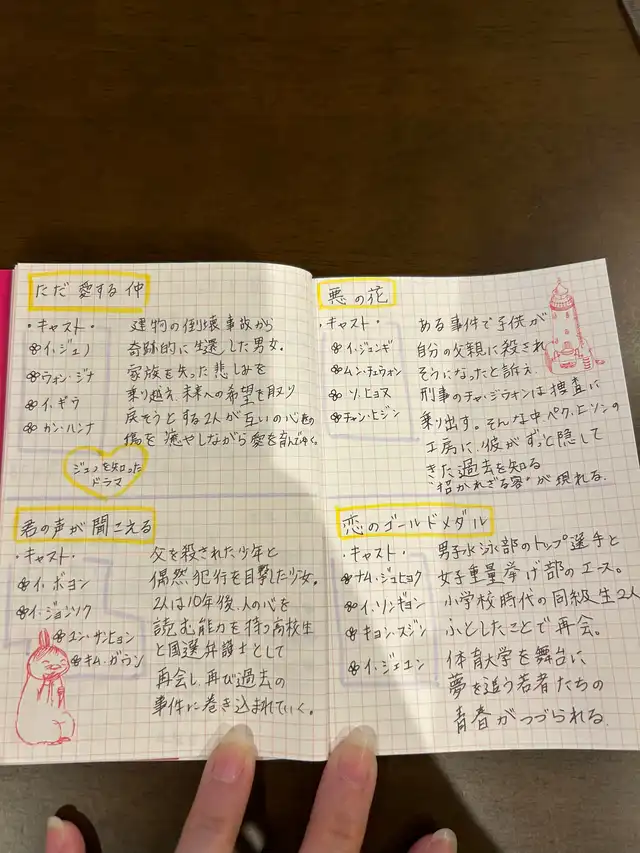 ただ愛する仲
・キャスト・
イ・ジュノ
ウォン・ジナ
イ・ギウ
カン・ハンナ
建物の倒壊事故から
奇跡的に生還した男女。
家族を失った悲しみを
乗り越え、未来への希望を取り
戻そうとする2人が互いの心の
傷を癒やしながら愛を育んでゆく。
ジュノを知った
ドラマ
君の声が聞こえる
・キャスト・
イ・ボヨン
イ・ジョンソク
ユン・サンヒョン
キム・ガウン
父を殺された少年と
偶然、犯行を目撃した少女。
2人は10年後、人の心を
読む能力を持つ高校生
と国選弁護士として
再会し、再び過去の
事件に巻き込まれていく。
悪の花
・キャスト・
イ・ジュンギ
ムン・チェウォン
ソ・ヒョヌ
チャン・ヒジン
ある事件で子供が
自分の父親に殺され
そうになったと訴え、
刑事のチャ・ジウォンは捜査に
乗り出す。そんな中、ペク・ヒソンの
工房に、彼がずっと隠して
きた過去を知る
"招かれざる客"が現れる。
恋のゴールドメダル
・キャスト・
ナム・ジュヒョク
イ・ソンギョン
キョン・スジン
イ・ジェユン
男子水泳部のトップ選手と
女子重量挙げ部のエース。
小学校時代の同級生2人
ふとしたことで再会。
体育大学を舞台に
夢を追う若者たちの
青春がつづられる。